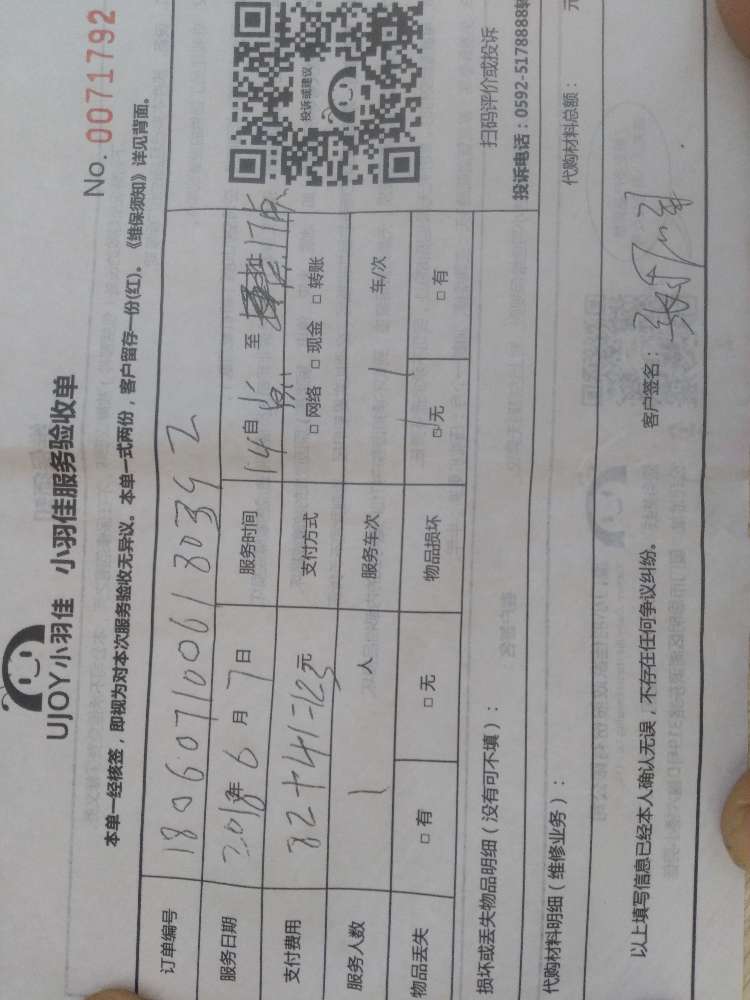 UJOY小羽佳 小羽佳服务验收单
No. 0071792
本单一经核签，即视为对本次服务验收无异议。本单一式两份，客户留存一份(红)。《维保须知》详见背面。
订单编号 1806071006180342
服务日期 2018年6月7日 服务时间 14自 至 17点
支付费用 82+41=123元 支付方式 □ 网络 □ 现金 □ 转账
服务人数 1 人 服务车次 1 车/次
物品丢失 □ 有 □ 无 物品损坏 □ 无 □ 有
投诉或建议
扫码评价或投诉
投诉电话：0592-5178888转
损坏或丢失物品明细（没有可不填）：
代购材料明细（维修业务）： 代购材料总额： 元
以上填写信息已经本人确认无误，不存在任何争议纠纷。 客户签名：